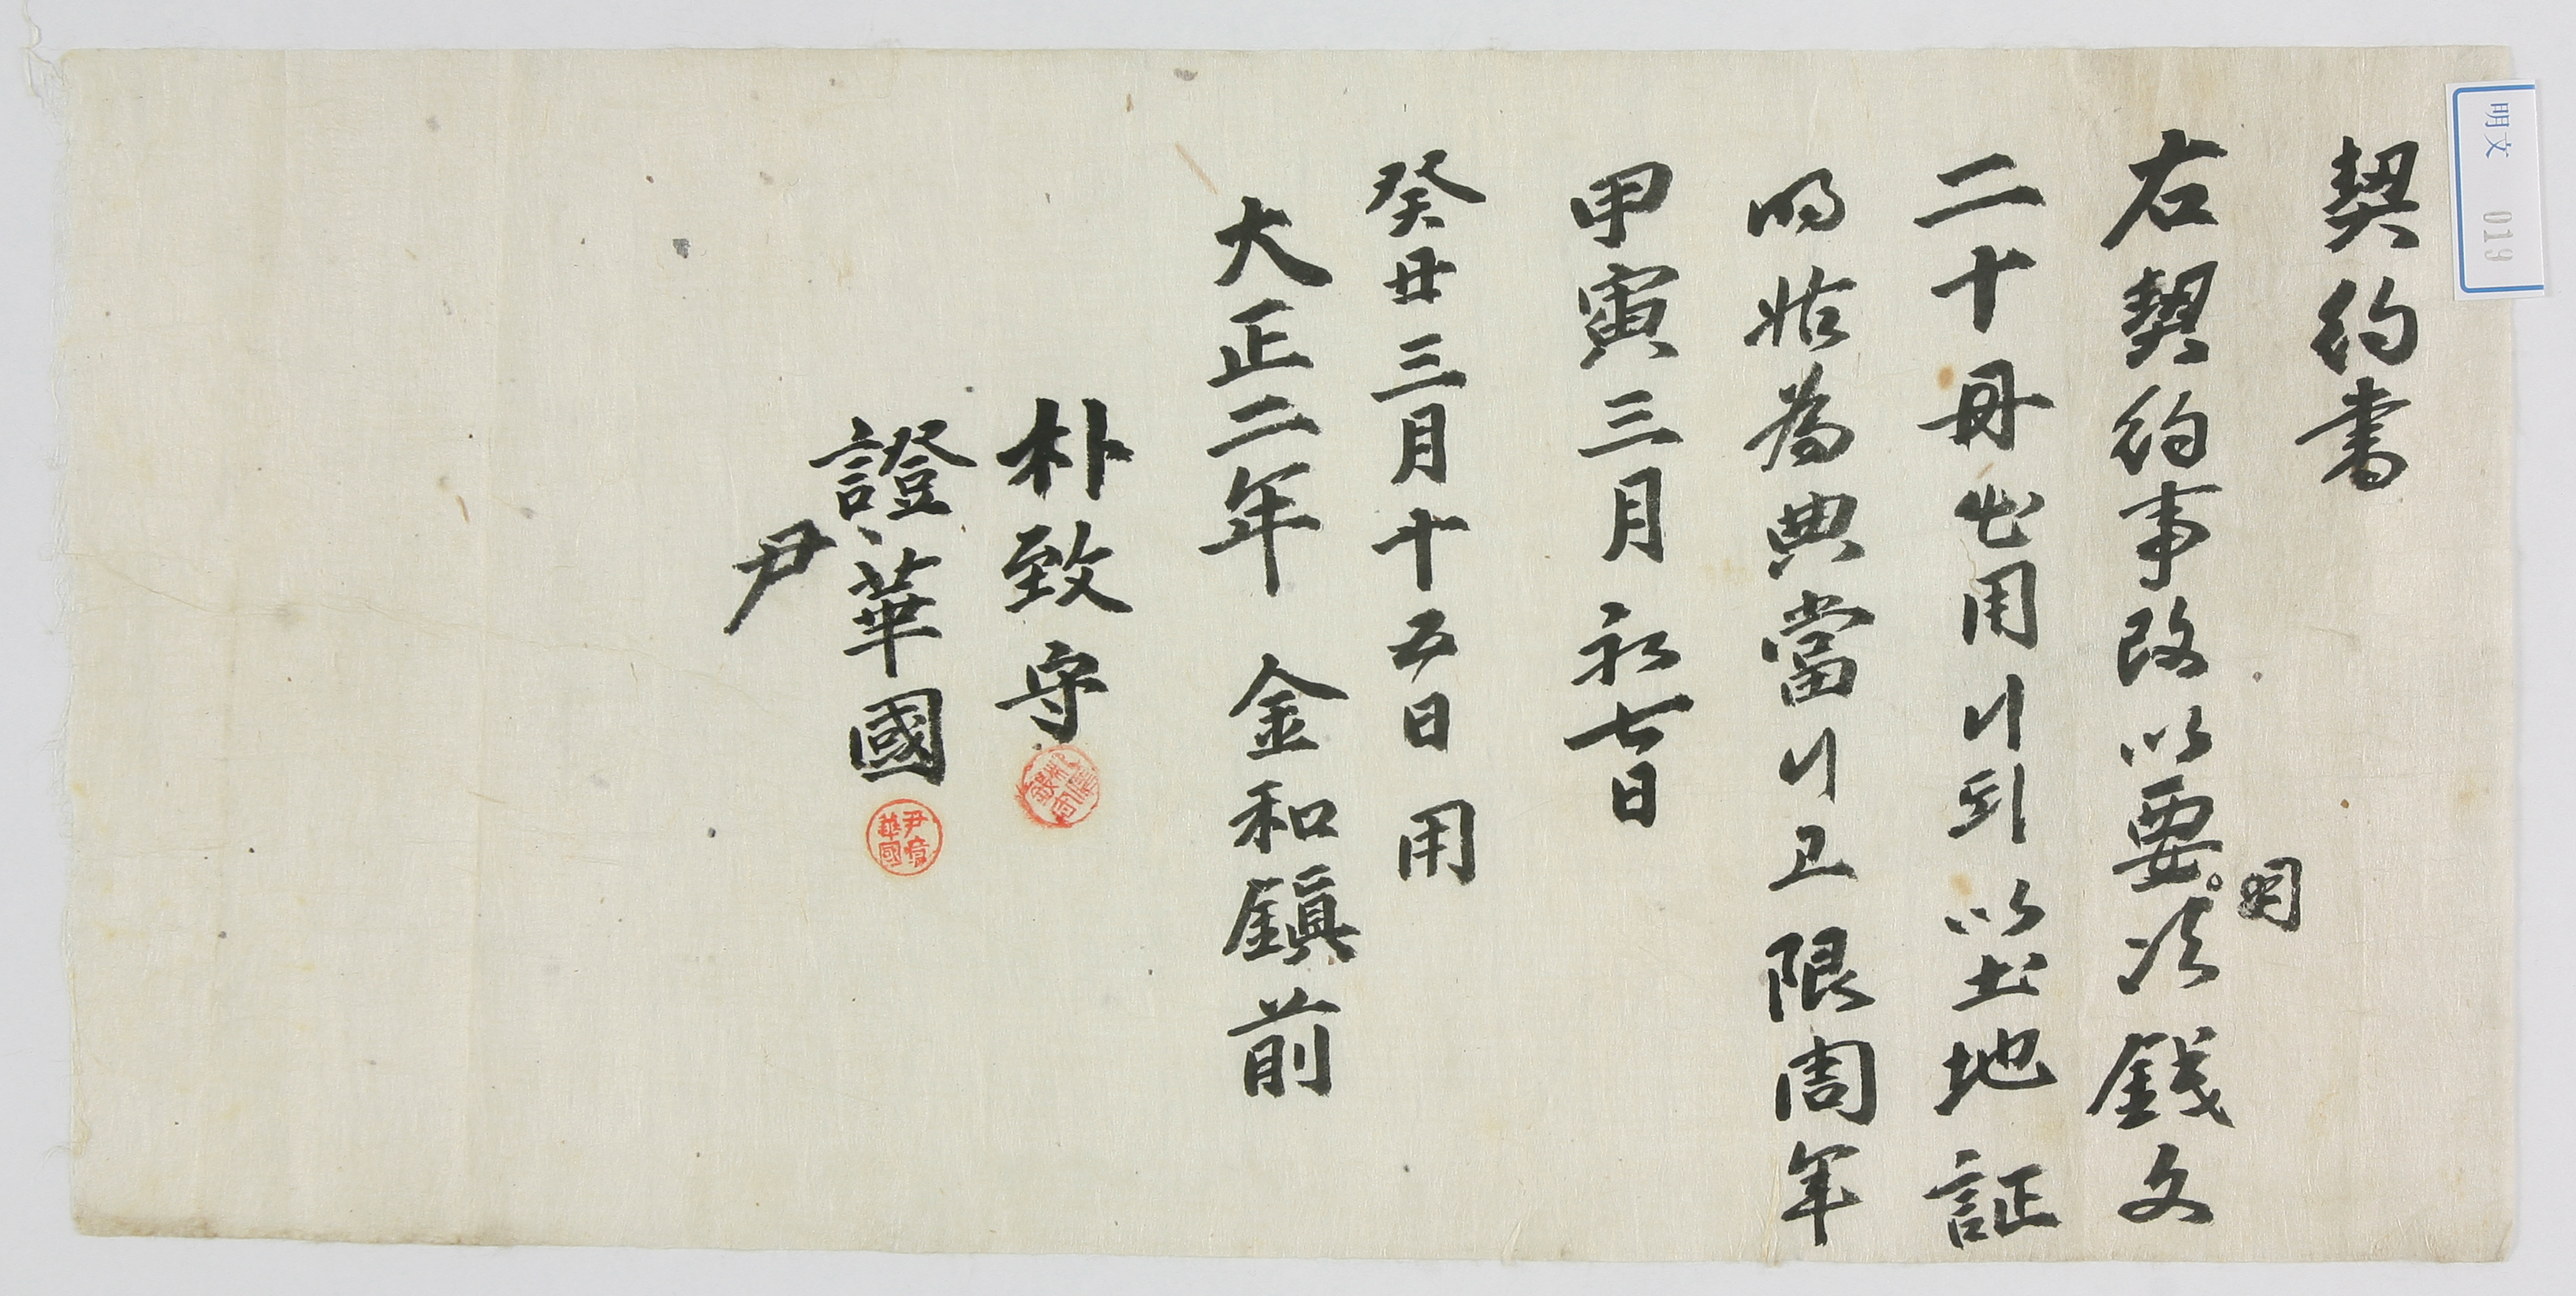 明文 019
契約書
右契約事段以要用次錢文
二十両出用リ되以土地証
明姑為典當リ고限周年
甲寅三月初七日
癸丑三月十五日用
大正二年 金和鎭前
朴致守
證尹華國
尹章華國